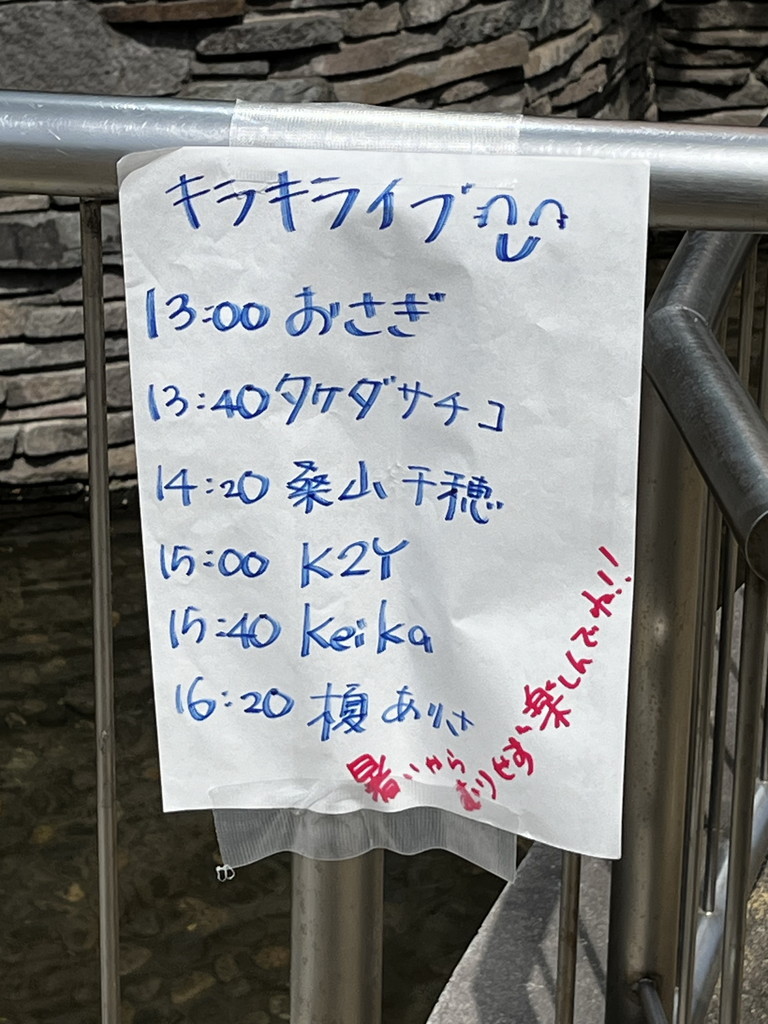 キラキライブ
13:00 おさぎ
13:40 タケダサチコ
14:20 桑山千穂
15:00 K2Y
15:40 Keika
16:20 榎ありさ
暑いから むりせず 楽しんでね!!